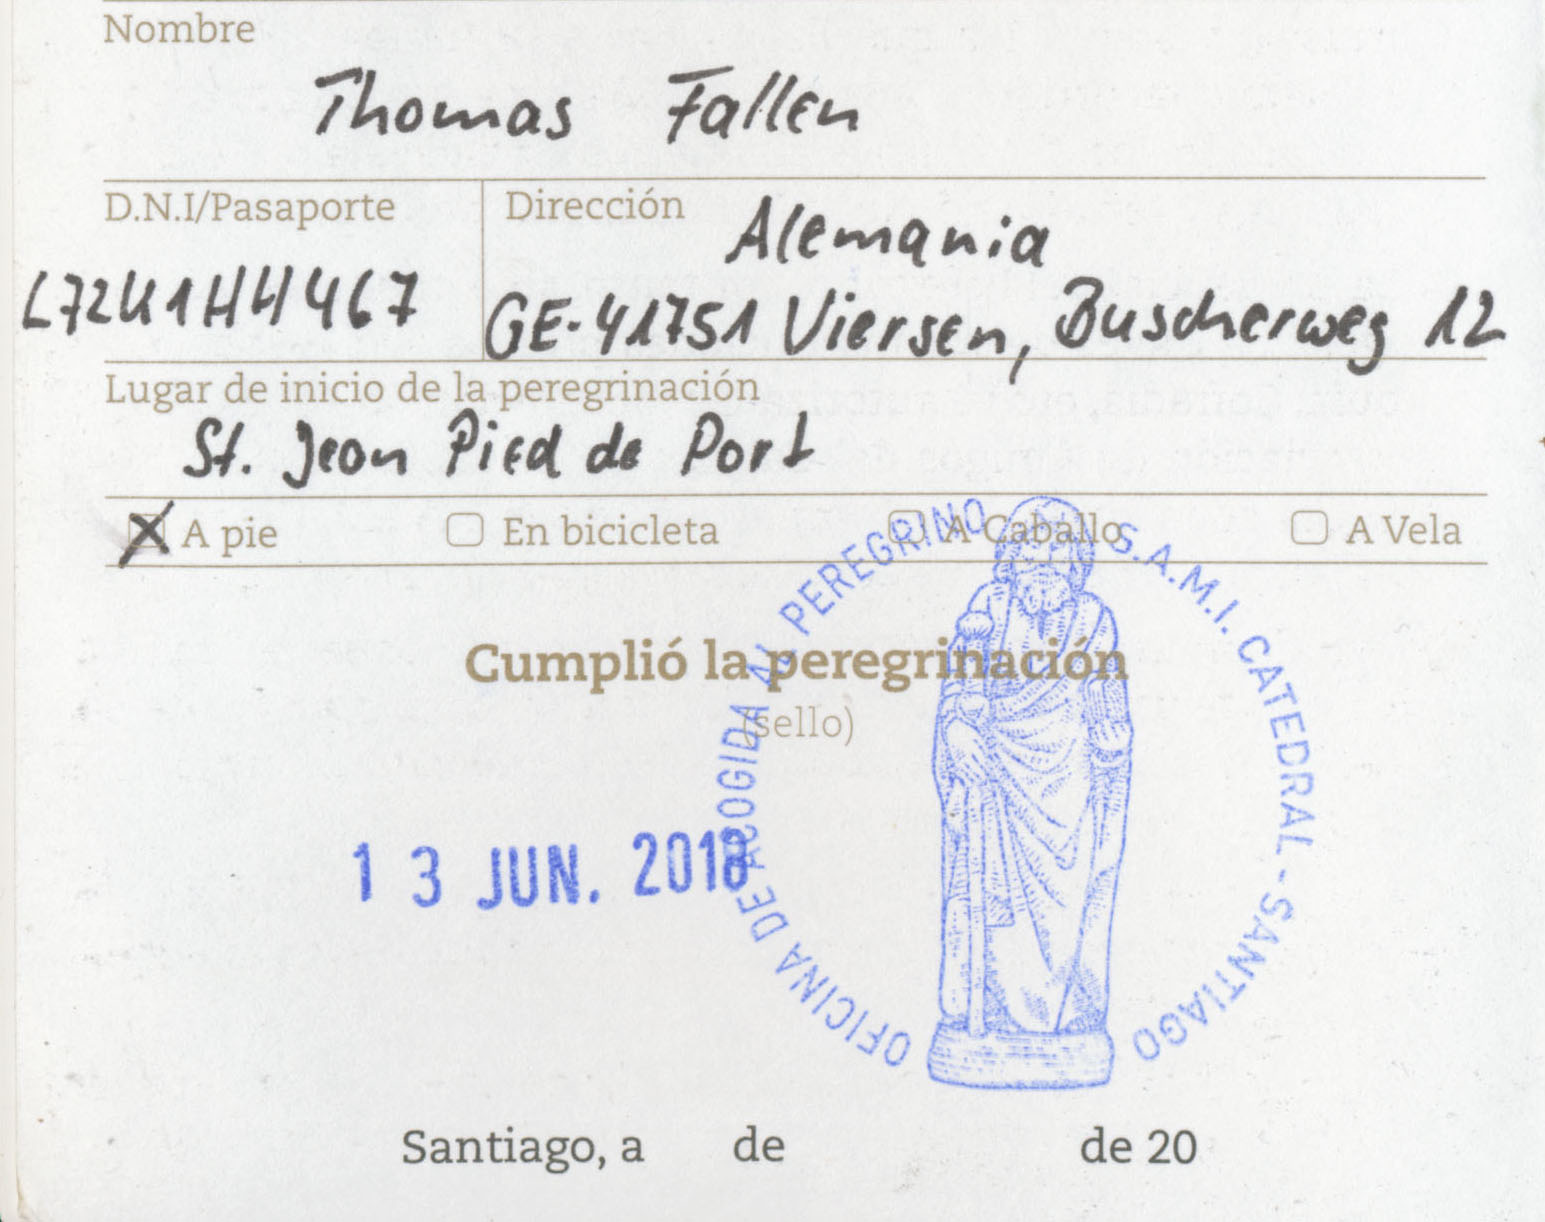 Nombre
Thomas Fallen
D.N.I/Pasaporte
Dirección
Alemania
L72U1HH467
GE-41751 Viersen, Buscherweg 12
Lugar de inicio de la peregrinación
St. Jean Pied de Port
A pie
En bicicleta
A Caballo
A Vela
Cumplió la peregrinación
(sello)
OFICINA DE ACOGIDA AL PEREGRINO S.A.M.I. CATEDRAL - SANTIAGO
13 JUN. 2018
Santiago, a de de 20